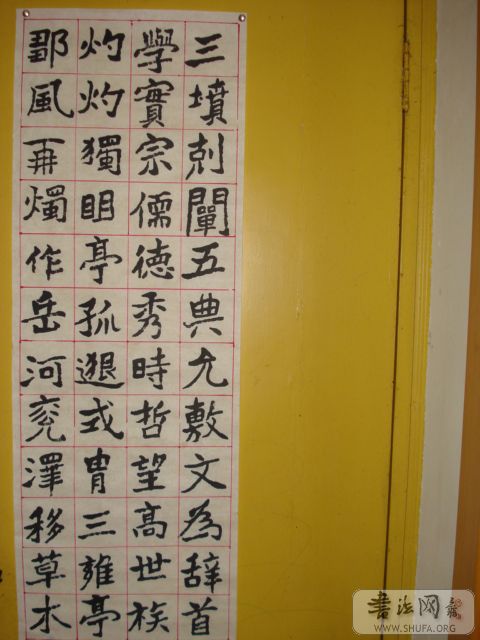 三墳剋闡五典允敷文為辭首
學實宗儒德秀時哲望高世族
灼灼獨明亭孤邈式胄三雍亭
鄒風再燭作岳河兗澤移草木
書法网
WWW.SHUFA.ORG